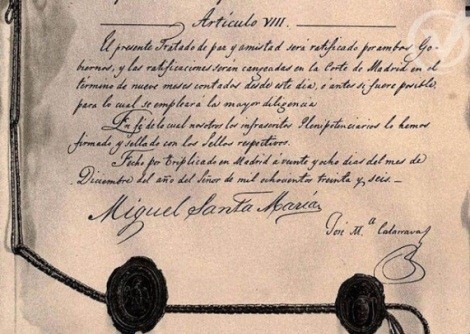 Artículo VIII.
El presente Tratado de paz y amistad será ratificado por ambos Go-
biernos, y las ratificaciones serán cangeadas en la Corte de Madrid en el
término de nueve meses contados desde este día, ó antes si fuere posible,
para lo cual se empleará la mayor diligencia
En fé de lo cual nosotros los infrascritos Plenipotenciarios lo hemos
firmado y sellado con los Sellos respectivos.
Fecho por triplicado en Madrid á veinte y ocho días del mes de
Diciembre del año del Señor de mil ochocientos treinta y seis.
Miguel Santa María
José M.ª Calatrava